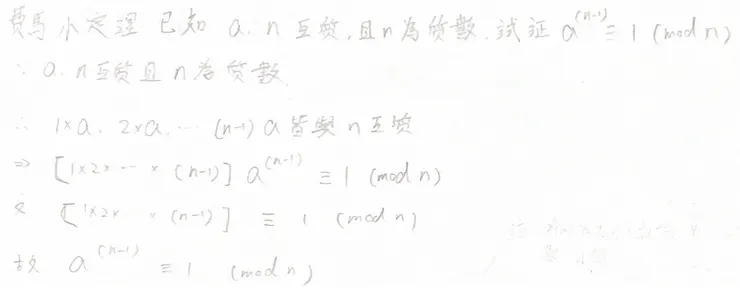 費馬小定理 已知 a.n 互質,且n為質數.試証 a^(n-1) ≡ 1 (mod n)
∵ a.n互質且n為質數
∴ 1×a. 2×a. ⋯ (n-1)a 皆與n互質
⇒ [1×2×⋯×(n-1)] a^(n-1) ≡ 1 (mod n)
又 [1×2×⋯×(n-1)] ≡ 1 (mod n)
故 a^(n-1) ≡ 1 (mod n)